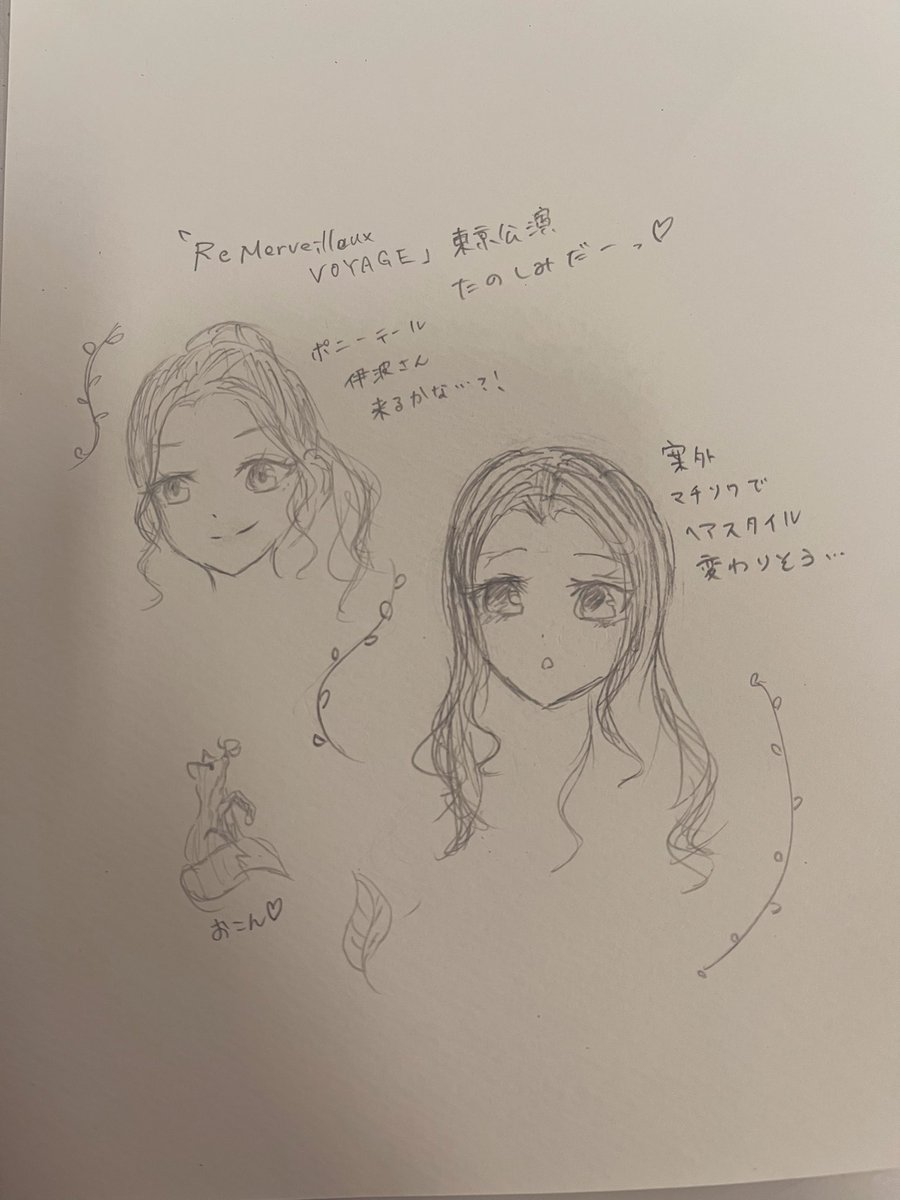 「Re Merveilleux
VOYAGE」東京公演
たのしみだーっ♡
ポニーテール
伊波さん
来るかな…?!
案外
マチソワで
ヘアスタイル
変わりそう…
おこん♡